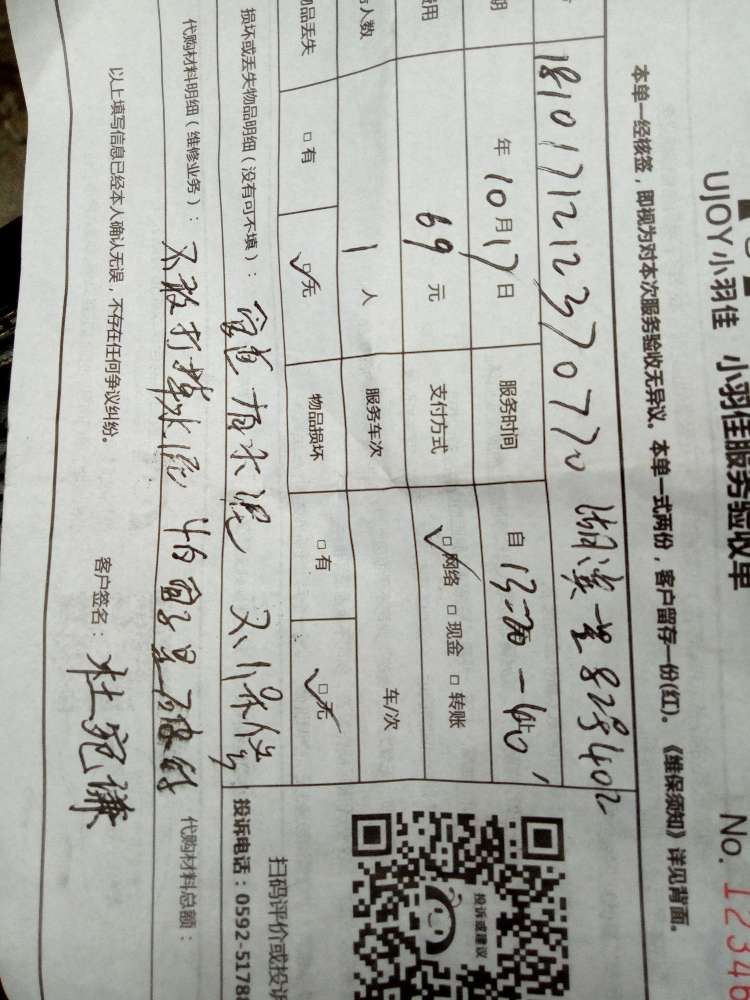 UJOY小羽佳 小羽佳服务验收单
No. 12346
本单一经核签，即视为对本次服务验收无异议。本单一式两份，客户留存一份(红)。《维保须知》详见背面。
1810171212370770 湖滨一里82号402
年10月17日 服务时间 自13:20-14:10
费用 69元 支付方式 ☑网络 □现金 □转账
人数 1人 服务车次 车/次
物品丢失 □有 ☑无 物品损坏 □有 ☑无
损坏或丢失物品明细（没有可不填）： 管道有水泥 不保修
代购材料明细（维修业务）： 不敢打掉水泥 怕管子是破的
代购材料总额：
以上填写信息已经本人确认无误，不存在任何争议纠纷。
客户签名：杜宛谦
投诉或建议
扫码评价或投诉
投诉电话：0592-5178